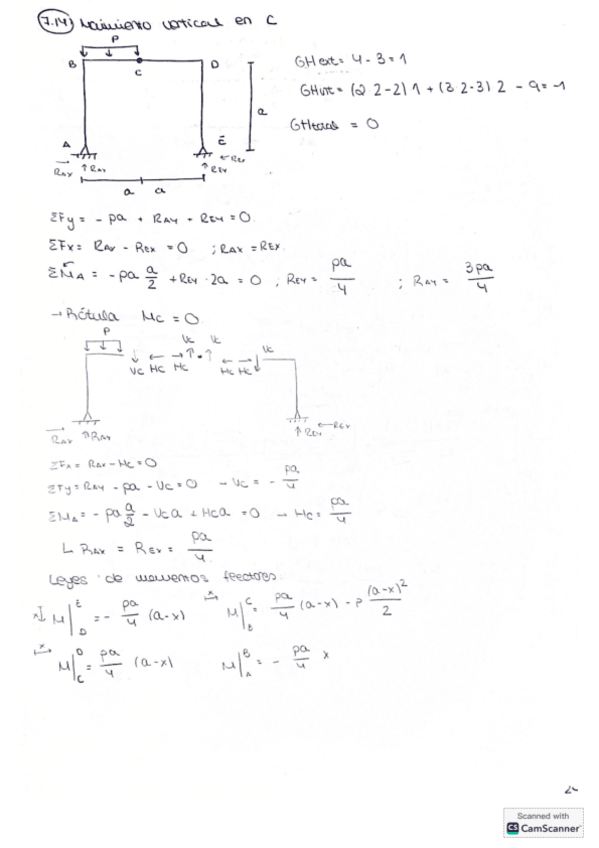 7.14) Movimiento vertical en C
P
B
C
D
A
E
RAX
RAY
REX
REY
a
a
a
GHext = 4 - 3 = 1
GHint = (2·2-2) 1 + (3·2-3) 2 - 9 = -1
GHtotal = 0
ΣFy = - pa + RAY - REY = 0
ΣFx = RAX - REX = 0 ; RAX = REX
ΣMA = - pa a/2 + REY · 2a = 0 ; REY = pa/4 ; RAY = 3pa/4
→ Rótula MC = 0
P
VC HC HC VC VC HC HC VC
RAX RAY REY REX
ΣFx = RAX - HC = 0
ΣFy = RAY - pa - VC = 0 → VC = - pa/4
ΣMA = - pa a/2 - VC a + HC a = 0 → HC = pa/4
L RAX = REX = pa/4
Leyes de momentos flectores:
x↓ M|D E = - pa/4 (a-x)
x M|B C = pa/4 (a-x) - p (a-x)²/2
x M|C D = pa/4 (a-x)
M|A B = - pa/4 x
Scanned with
CS CamScanner